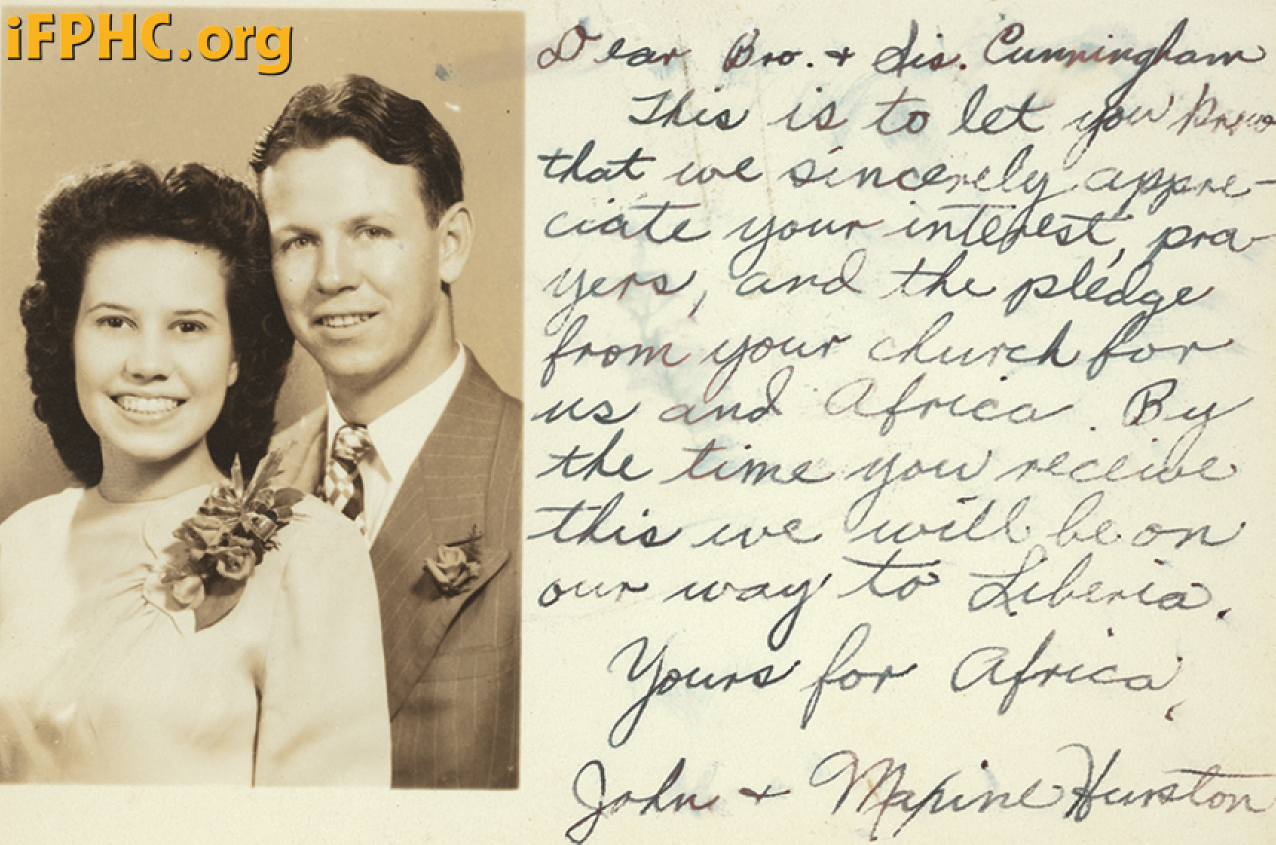 iFPHC.org
Dear Bro. + Sis. Cunningham
This is to let you know
that we sincerely appre-
ciate your interest, pra-
yers, and the pledge
from your church for
us and Africa. By
the time you receive
this we will be on
our way to Liberia.
Yours for Africa,
John + Maxine Hurston